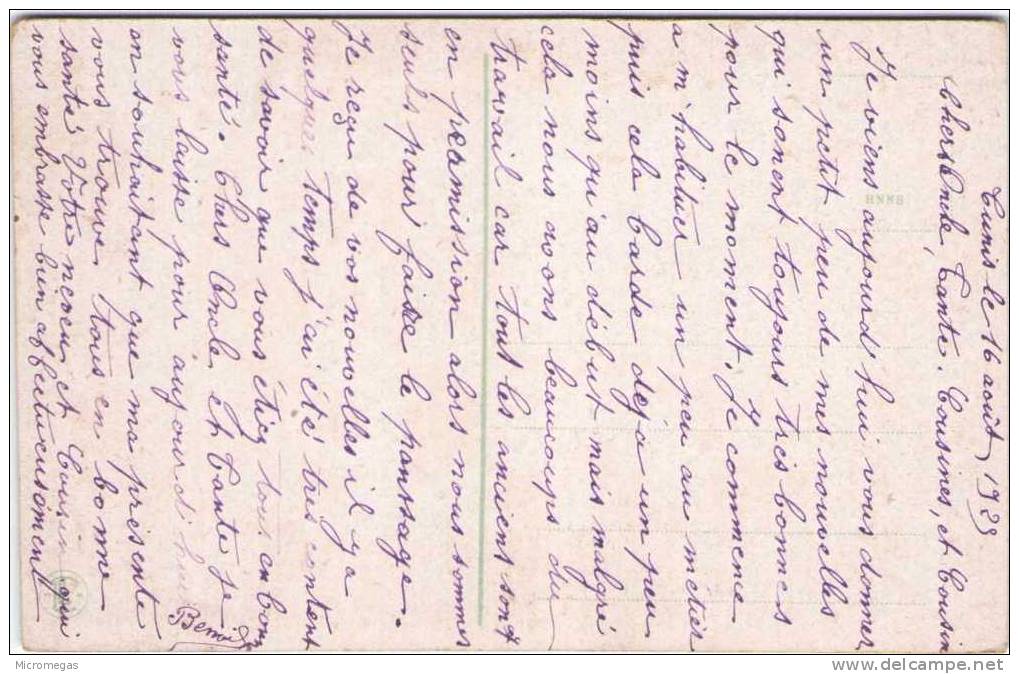 Tunis le 16 aout 1929
Chers Oncle, Tante, Cousines, et Cousin
Je viens aujourd'hui vous donner
un petit peu de mes nouvelles
qui sonent toujours tres bonnes
pour le moment, Je commence
a m'habituer un peu au métier
puis cela barde déja un peu
moins qu'au début mais malgré
cela nous avons beaucoups du
travail car tout les anciens sont
en permission alors nous sommes
seuls pour faire le pansage.
Je reçu de vos nouvelles il y a
quelques temps j'ai été très content
de savoir que vous étiez tous en bonne
santé. Chers Oncle et Tante je
vous laisse pour aujourd'hui
en souhaitant que ma présente
vous trouve tous en bonne
santé, Votre neveu et Cousin qui
vous embrasse bien affectueusement
Benoit
BNNH
Micromegas
www.delcampe.net